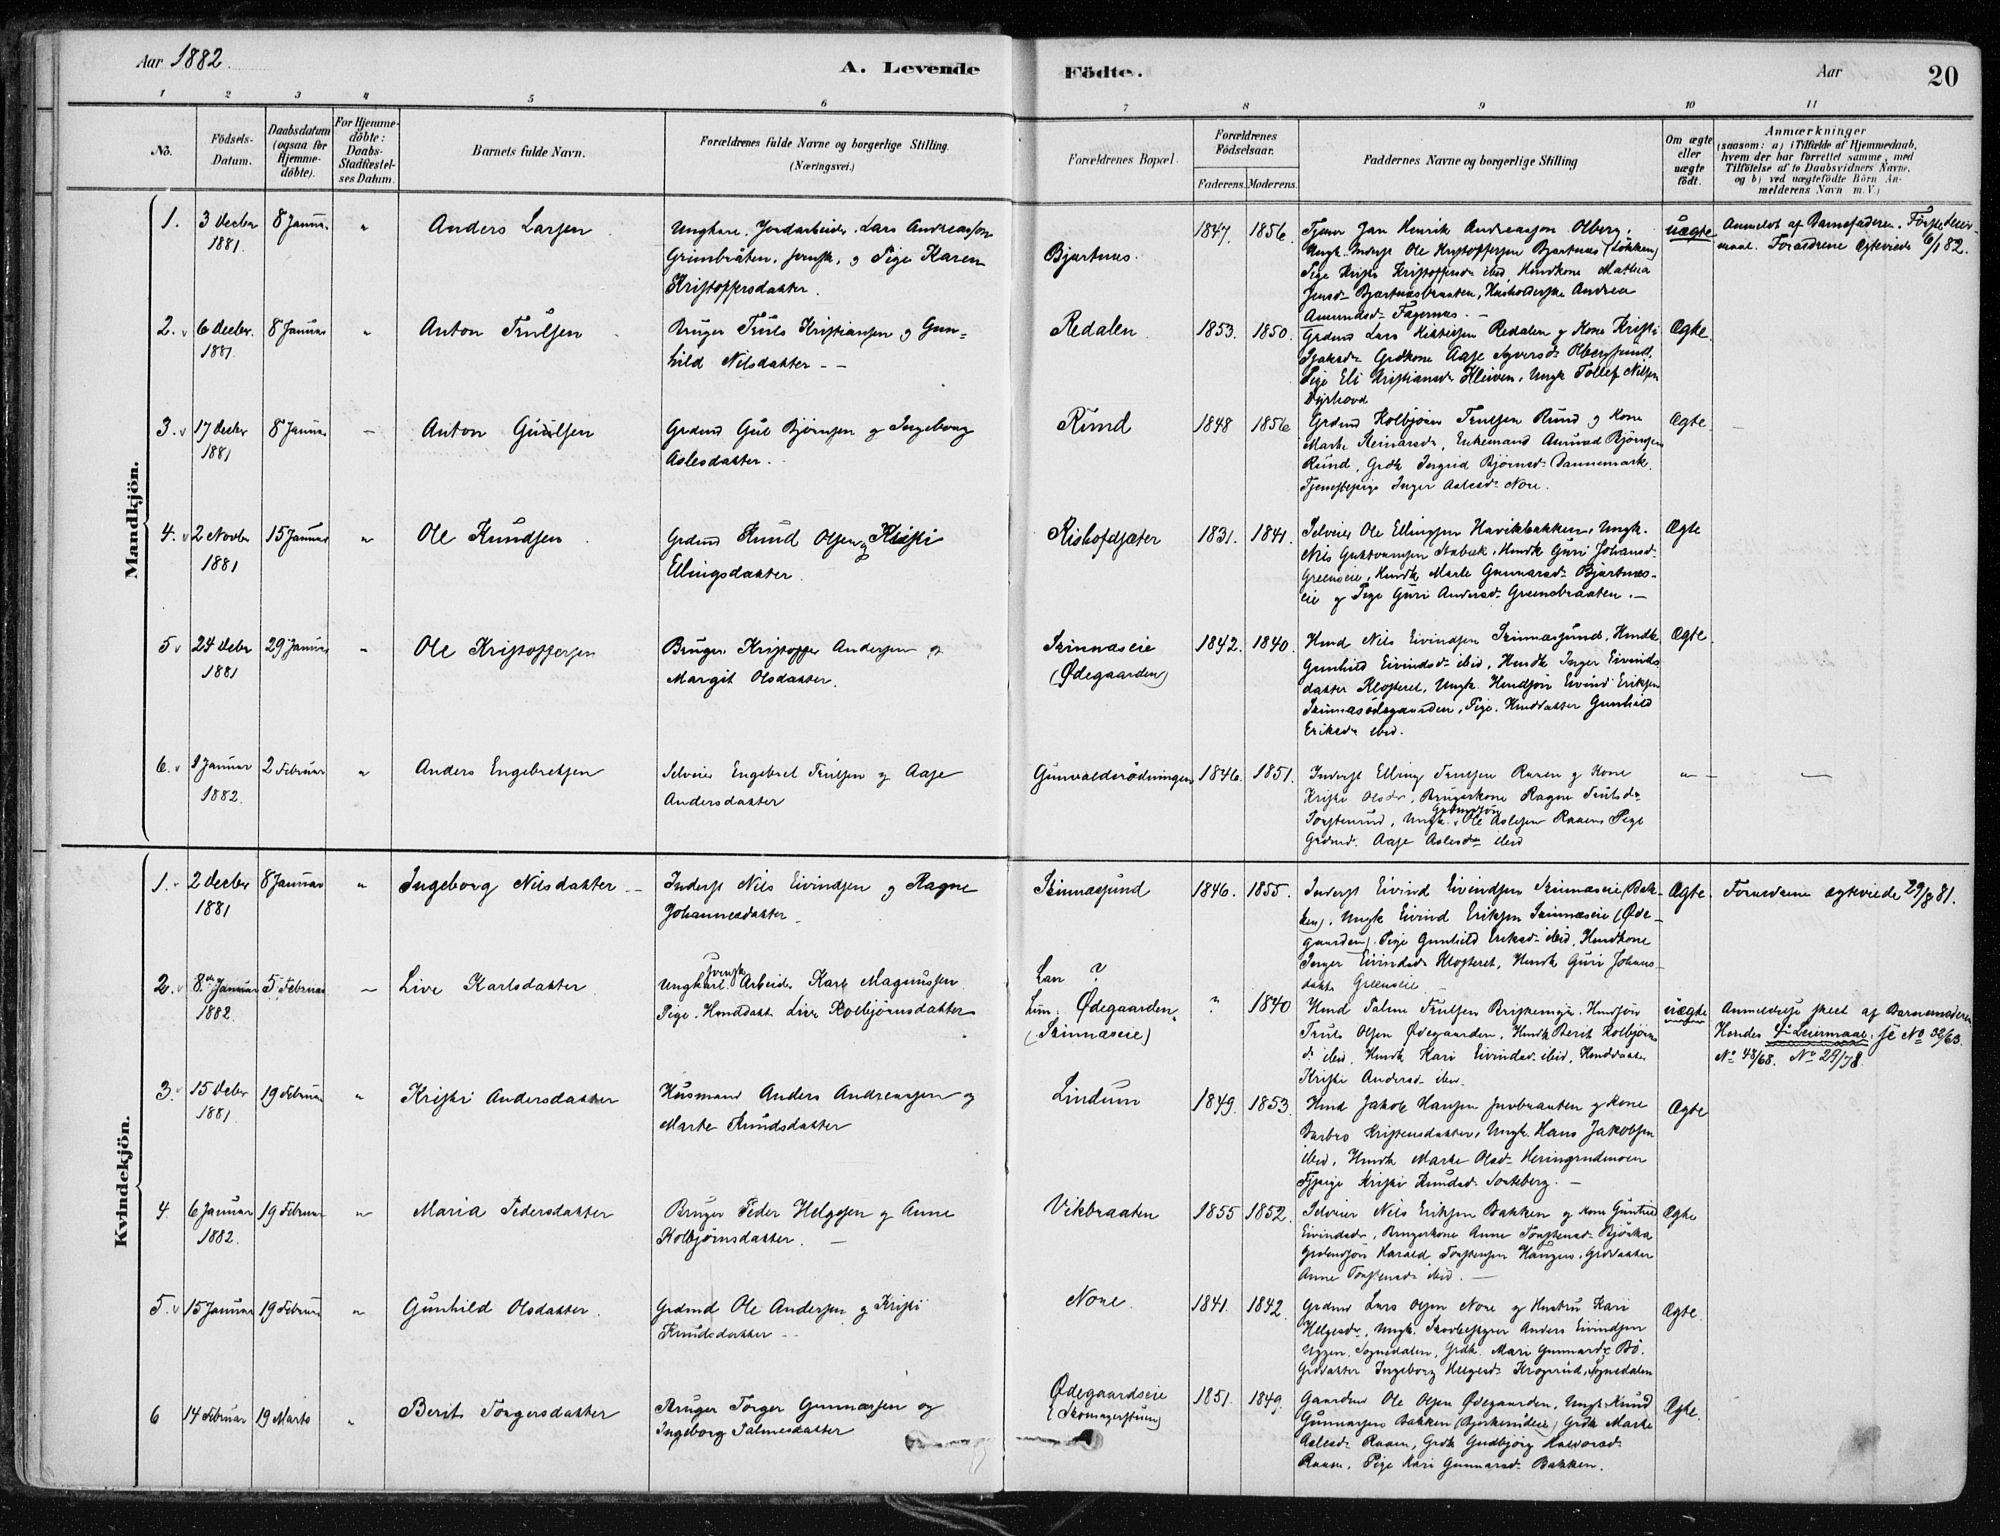 Aar 1882
A. Levende Födte.
Aar
20
1 2 3 4 5 6 7 8 9 10 11
No.
Födsels-Datum.
Daabsdatum (ogsaa for Hjemmedöbte).
For Hjemmedöbte: Daabs-Stadfæstelses Datum.
Barnets fulde Navn.
Forældrenes fulde Navne og borgerlige Stilling. (Næringsvei.)
Forældrenes Bopæl.
Forældrenes Födselsaar.
Faderens. Moderens.
Faddernes Navne og borgerlige Stilling
Om ægte eller uægte födt.
Anmærkninger
(saasom: a) i Tilfælde af Hjemmedaab, hvem der har forrettet samme, med Tilföielse af to Daabsvidners Navne, og b) ved uægtefödte Börn Anmelderens Navn m. V.)
Mandkjön.
1. 3 Decber 1881 8 Janua. " Anders Larsen
Ungkarl. Jordarbeider Lars Andreassen
Grünbråten, svensk, og Pige Karen
Kristoffersdatter.
Bjertnæs.
1847. 1856.
Tjener Jan Henrik Andreassøn Olberg,
Ungk. Inderst Ole Kristoffersen Bjertnæs (Løkken)
Pige Kristi Kristoffersd. ibid Hmdkone Mathea
Jensd. Bjertnæsbraaten, Husholderske Andrea
Amundsd. Fagernæs.
uægte
Anmeldt af Barnefaderen. Første Leiermaal. Forældrene Egteviede 6/1 82.
2. 6 Decbr. 1881 8 Januar " Anton Trulsen
Bruger Truls Kristiansen og Gunhild Nilsdatter
Redalen
1853. 1850.
Grdmd Lars Kittilsen Redalen og Kone Kristi
Grdkone Aase Syversd. Olbergsund,
Pige Eli Kristiansd. Kleiven, Ungk Tollef Nilsen
Ægte.
3. 17 Decbr 1881 8 Januar Anton Gulsen
Grdmd Gul Bjørnsen og Ingeborg
Aslesdatter.
Rund
1848 1856
Grdmd Kolbjørn Trulsen Rund og Kone
Marte Reinarsd., Enkemand Amund Bjørnsen
Rund, Grdk Ingrid Bjørnsd. Dannemark.
Tjenestepige Inger Aslesd. Nore.
Ægte.
4. 2 Novbr 1881 15 Januar " Ole Knudsen
Grdmd Knud Olsen og Kristi
Ellingsdatter.
Rishofdsæter
1831. 1841.
Selveier Ole Ellingsen Havikbakken, Ungk.
Nils Gulstvansen Stabæk, Hmdk Guri Johansd.
Greenseie, Hmdk Marte Gunnarsd. Bjertnæseie og Pige Guri Andersd. Greensbraaten.
Ægte
5 24 Debr 1881 29 Januar " Ole Kristoffersen
Bruger Kristoffer Andersen og
Margit Olsdatter.
Skinnæseie
(Ødegaarden)
1842. 1840.
Hmd Nils Eivindsen Skinnæsund, Hmdk
Gunhild Eivindsd. ibid, Hmdk Inger Eivindsdatter Klosteret, Ungk. Hmdsøn Eivind Eriksen
Skinnæsødegaarden, Pige. Hmddatter Gunhild
Eriksd. ibid.
Ægte.
6. 9 Januar 1882. 2 Februar " Anders Engebretsen
Selveier Engebret Trulsen og Aase
Andersdatter
Gunvaldsrødningen
1846. 1851.
Inderst Elling Trulsen Raaen og Kone
Kristi Olsdr, Brugerkone Ragne Trulsdr
Torstenrud, Ungk. Grdmdsøn Ole Aslesen Raaen Pige
Grdmd. Aase Aslesd. ibid
"
Kvindekjön.
1. 2 Decber 1881 8 Januar " Ingeborg Nilsdatter
Inderst Nils Eivindsen og Ragne
Johannesdatter
Skinnæsund
1846. 1855.
Inderst Eivind Eivindsen Skinnæseie (Bakken), Ungk Eivind Eriksen Skinnæseie (Ødegaarden). Pige Gunhild Eriksd. ibid, Hmdkone
Inger Eivindsd. Klosteret, Hmdk Guri Johansdatter Greenseie.
Ægte.
Forældrene ægteviede 29/8 81.
2. 8de Januar 1882. 5 Februar Live Karlsdatter
Ungkarl svensk Arbeider Karl Magnussen
Pige. Hmddatt Live Kolbjørnsdatter
Han ?
Hun. Ødegaarden
(Skinnæseie)
? 1840
Hmd Palme Trulsen Hmdsøn
Truls Olsen Ødegaarden, Hmdk Berit Kolbjørnsd. ibid, Hmdk Kari Eivindsd. ibid, Hmddatter
Kristi Andersd. ibid.
uægte
Anmeldelse skeet af Barnemoderen
Hendes 4de Leiermaal, se No 32/63.
No 48/68. No 29/78.
3. 15 Decbr 1881. 19 Februar " Kristi Andersdatter
Husmand Anders Andreassen og
Marte Knudsdatter
Lindum
1849. 1853.
Hmd Jakob Hansen og Kone
Barbro Kristensdatter, Ungk. Hans Jakobsen
ibid, Hmdk Marte Olsd. Heringrudmoen
Tjpige Kristi Knudsd. Sonteberg.
Ægte
4. 6 Januar 1882. 19 Februar " Maria Pedersdatter
Bruger Peder Helgesen og Anne
Kolbjørnsdatter.
Vikbraaten
1855 1852.
Selveier Nils Eriksen Bakken og Kone Gunhild
Eivindsdr, Brugerkone Anne Torstensd.
Grdmdsøn Harald Torstensen Haugen, Grddatter
Anne Torstensd. ibid.
Ægte
5. 15 Januar 19 Februar " Gunhild Olsdatter.
Grdmd Ole Andersen og Kristi
Knudsdatter
Nore.
1841. 1842.
Grdmd Lars Olsen Nore og Hustru Kari
Helgesdr, Ungk. Skovbestyrer Anders Eivindsen
Eggen, Sognedalen, Grdk. Mari Gunnarsd. Bø.
Grddatter Ingeborg Helgesd. Krogerud, Sognedalen
Ægte.
6 14 Februar 19 Marts " Berit Torgersdatter
Bruger Torger Gunnarsen og
Ingeborg Palmesdatter
Ødegaardseie
(Skomagerstuen)
1851. 1849.
Gaardmd Ole Olsen Ødegaarden, Ungk Knud
Gunnarsen Bakken (Bjerkerudeie) Grdk Marte
Aslesd. Raaen, Grdk Gudbjørg Halvorsd.
Raaen, Pige Kari Gunnarsd. Bakken.
Ægte.